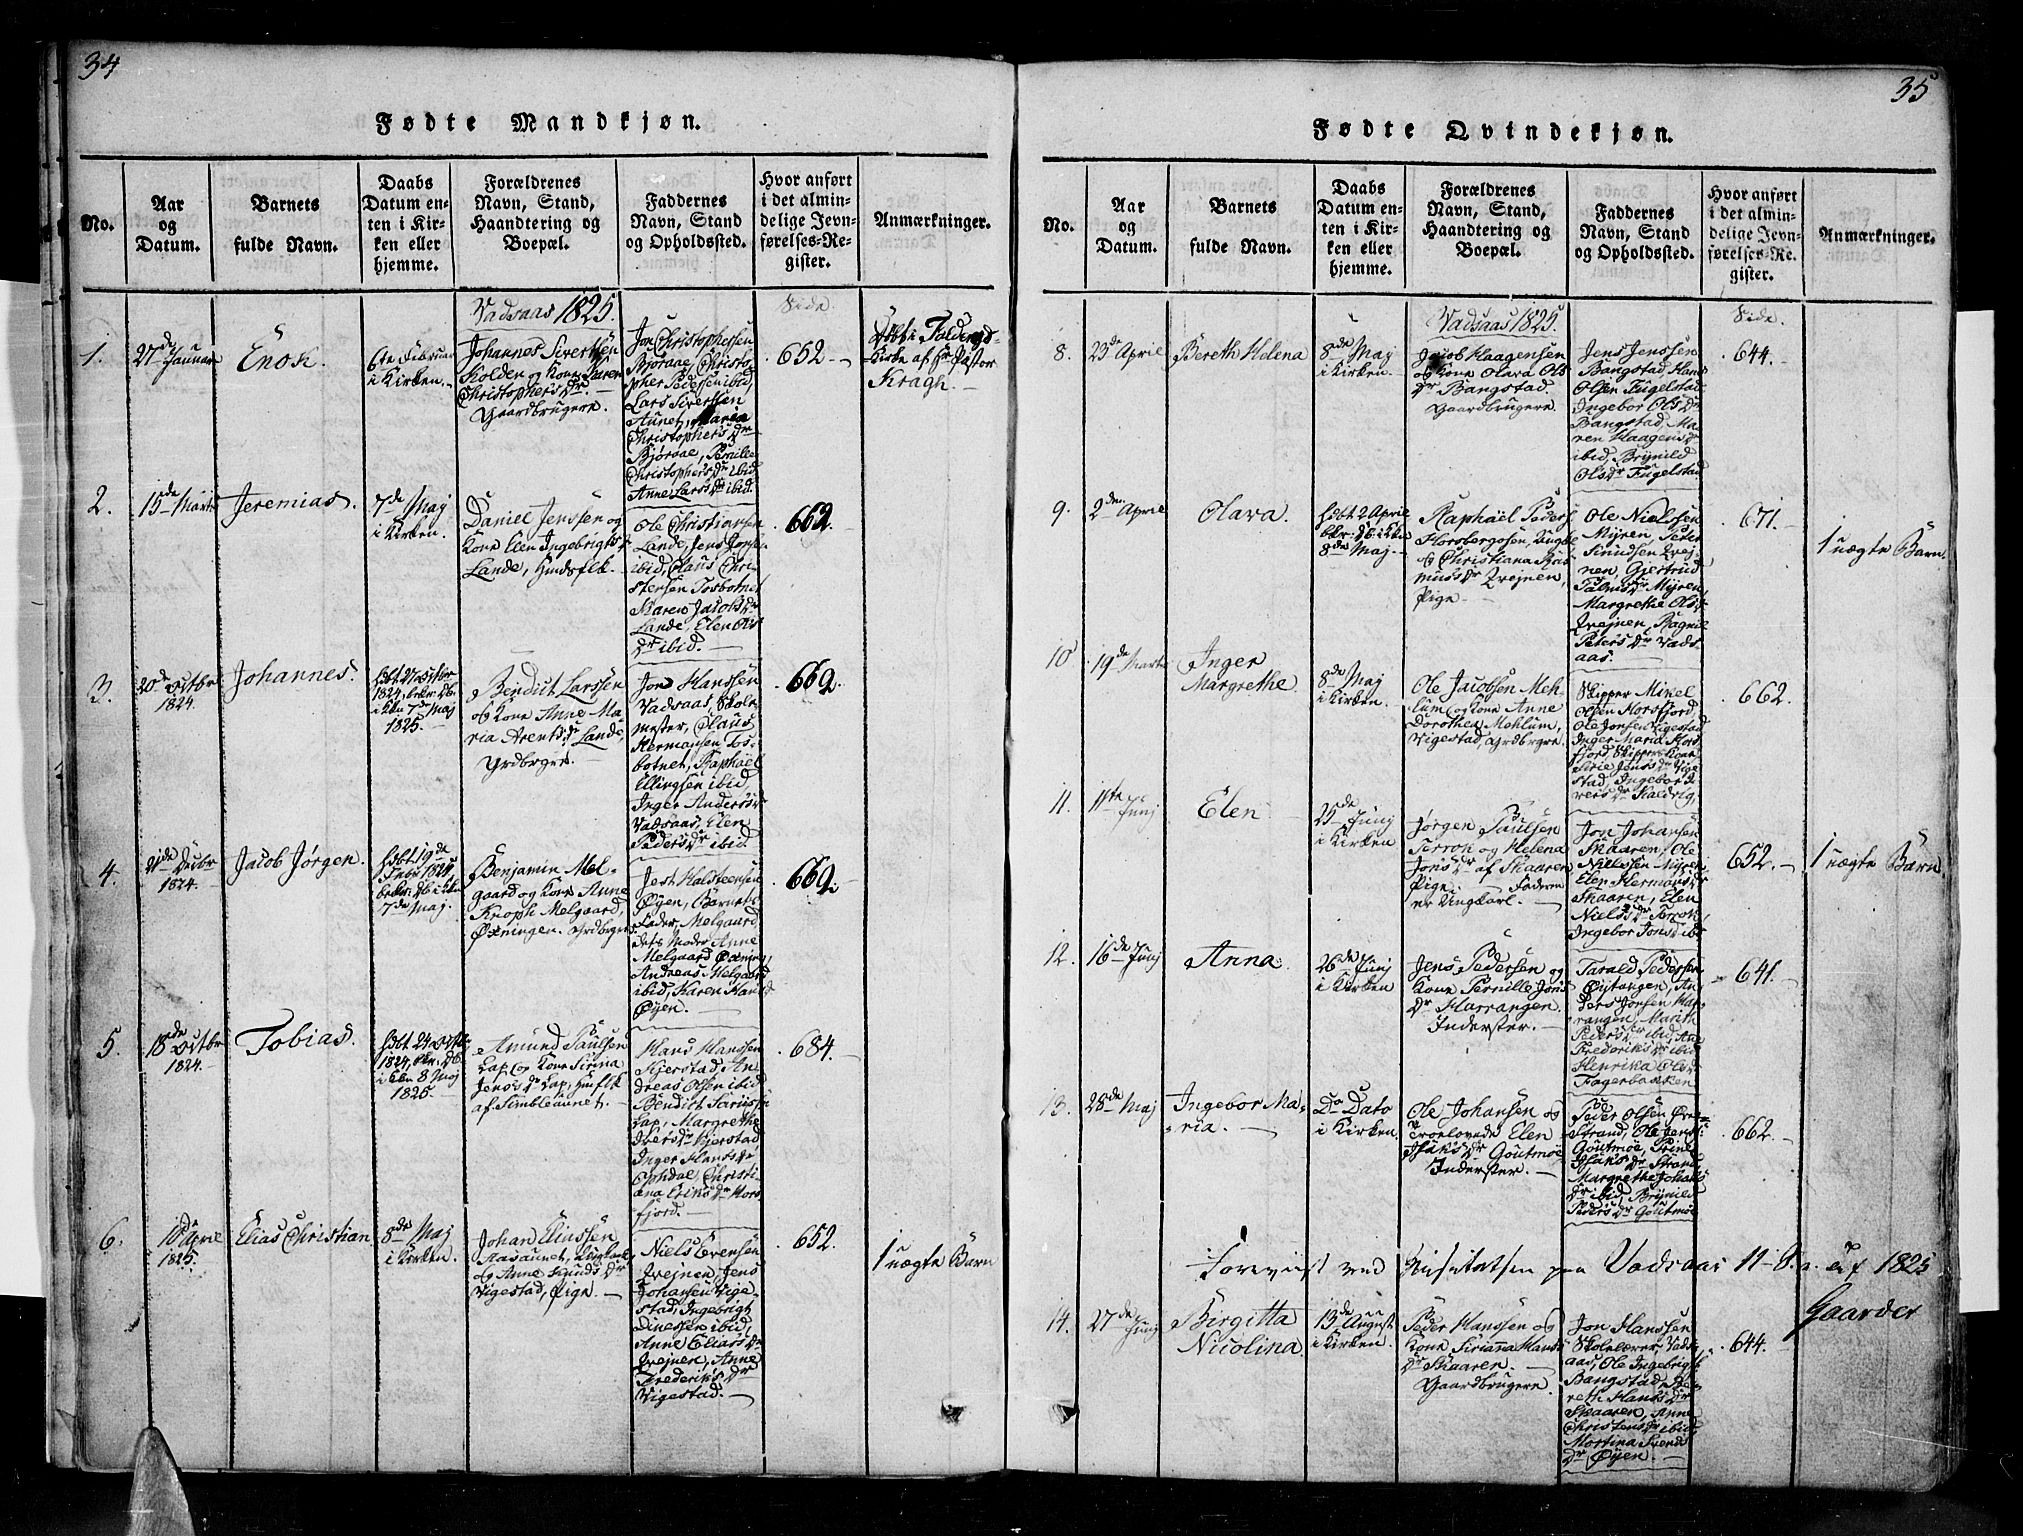 34
Fødte Mandkjøn.
No.
Aar
og
Datum.
Barnets
fulde Navn.
Daabs
Datum en-
ten i Kir-
ken eller
hjemme.
Forældrenes
Navn, Stand,
Haandtering og
Boepæl.
Faddernes
Navn, Stand
og Opholdssted.
Hvor anført
i det almin-
delige Jevn-
førelses-Re-
gister.
Anmærkninger.
Vadsaas 1825.
Side
1.
27de Januar
Enok
6te Februar
i Kirken.
Johannes Sivertsen
Kolden og Kone Karen
Christophers Dr.
Gaardbrugere.
Jon Christophersen
Bjøraae, Christo-
pher Pedersen ibid,
Lars Sivertsen
Aunet, Maria
Christophers Dr
Bjøraae, Pernille
Christophers Dr ibid
Anne Lars Dr ibid.
652
Kirke af Hr Pastor
Kragh.
2.
15de Marts
Jeremias.
7de Maj
i Kirken.
Daniel Jenssen og
Kone Elen Ingebrigts
Lande, Huusfolk.
Ole Christiansen
Lande, Jens Jonsen
ibid, Claus Chri-
stensen Tosbotnet
Maren Jacobs Dr
Lande, Elen Ols
Dr ibid.
662.
3.
20de Octbr
1824.
Johannes.
hdbt 21 Octbr
1824, bekr. Db.
i Kkn 7de Maj
1825.
Bendict Larssen
og Kone Anne Ma-
ria Arents Dr Lande,
Grdbrgre.
Jon Hanssen
Vadsaas, Skole-
mester, Claus
Hermansen Tos-
botnet, Raphael
Ellingsen ibid,
Inger Anders Dr
Vadsaas, Elen
Peders Dr ibid.
662.
4.
21de Decbr
1824.
Jacob Jørgen.
hdbt 19de
Febr 1825,
bekr: Db i Kkn
7de Maj.
Benjamin Mel-
gaard og Kone Anne
Knoph Melgaard,
Øxningen. Grdbrgre
Jert Halsteensen
Øÿen, Barnets
Fader, Melgaard
dets Moder Anne
Melgaard Øxning,
Andreas Melgaard
ibid, Karen Hans D
Øyen.
662.
5.
18de Octbr
1824.
Tobias.
hdbt 24 Octbr
1824, bkr. Db
i Kkn 8 Maj
1825.
Amund Paulsen
Lap, og Kone Sirina
Jens Dr Lap, Huusflk
af Simleaunet.
Hans Hanssen
Kjerstad, An-
dreas Olsen ibid
Bendict Sariussen
Lap, Margrethe
Ivers Dr Kjerstad
Inger Hans Dr
Ophdal, Christi-
ana Eriks Dr Hors-
fjord.
684.
6.
10de April
1825.
Elias Christian
8de Maj
i Kirken.
Johan Eliassen
Aasaunet, Ungkarl
og Anne Knuds Dr
Vigestad, Pige.
Niels Evensen
Zvejnen, Jens
Johansen Vige-
stad, Ingebrigt
Dinessen ibid,
Anne Elias Dr
Zvejnen, Anne
Frederiks Dr
Vigestad.
652.
1 uægte Barn
35
Fødte Qvindekjøn.
No.
Aar
og
Datum.
Barnets
fulde Navn.
Daabs
Datum en-
ten i Kir-
ken eller
hjemme.
Forældrenes
Navn, Stand,
Haandtering og
Boepæl.
Faddernes
Navn, Stand
og Opholdssted.
Hvor anført
i det almin-
delige Jevn-
førelses-Re-
gister.
Anmærkninger.
Vadsaas 1825.
Side.
8.
23de April
Bereth Helena
8de Maj
i Kirken.
Jacob Haagensen
og Kone Olava Ols
Dr Bangstad.
Gaardbrugere.
Jens Jenssen
Bangstad, Hans
Olsen Fugelstad
Ingebor Ols Dr
Bangstad, Ma-
ren Haagens Dr
ibid, Brynild
Ols Dr Fugelstad.
644.
9.
2den April
Olava.
hdbt 2 April
bkr. Db. i Kkn
8de Maj.
Raphaël Peders
Horsbergosen, Ungkl
& Christiana Ras-
mus Dr Zvejnen,
Pige
Ole Nielssen
Myren, Peter
Simudsen Zvej-
nen, Gjertrud
Palms Dr Myren,
Margrethe Ols
Zvejnen, Ragnil
Peters Dr Vads-
aas.
671.
1 uægte Barn.
10
19de Marts
Inger
Margrethe.
8de Maj
i Kirken.
Ole Jacobsen Meh-
lum og Kone Anne
Dorothea Mehlum,
Vigestad, Grdbrgre.
Skipper Mikel
Olsen Horsfjord
Ole Jonsen Vigestad
Inger Maria Hors-
fjord, Skippers Kone
Sirie Jens Dr Vige-
stad, Ingebor I-
vers Dr Kaldvig.
662.
11.
11te Junj
Elen
25de Junj
i Kirken
Jørgen Paulsen
Terrok og Helena
Jons Dr af Skaaren
Pige. Faderen
er Ungkarl.
Jon Johansen
Skaaren, Ole
Nielssen Myren
Elen Hermans Dr
Skaaren, Elen
Niels Dr Terrok,
Ingebor Jons D ibd
652.
1 uægte Barn
12.
16de Junj
Anna.
26de Junj
i Kirken
Jens Pedersen og
Kone Pernille Jons
Dr Harrangen
Inderster.
Tarald Pedersen
Øytangen, An-
ders Jonsen Har-
rangen, Marith
Peders Dr ibid, Ane
Frederiks Dr ibid
Henrika Ols Dr
Fagerbakken
641.
13.
28de Maj
Ingebor Ma-
ria.
Do Dato
i Kirken.
Ole Johansen og
Troelovede Elen
Isaks Dr Goutmoe
Inderster.
Peder Olsen Øvre-
Strand, Ole Jenssen
Goutmoe, Trine
Isaks Dr Strand
Margrethe Johans
Dr ibid, Brynild
Peders Dr Goutmoe
662.
Foreviist ved Visitatsen paa Vadsaas 11-8. 1825
Gaarder
14.
27de Junj
Birgitta
Nicolina
13de August
i Kirken
Peder Hanssen og
Kone Sirianna Hans
Dr Skaaren.
Gaardbrugere.
Jon Hanssen
Skolelærer Vads-
aas, Ole Ingebrigts
Bangstad, Be-
reth Hans Dr
Skaaren, Anne
Christens Dr ibid
Mortina Svends
Dr Øÿen.
644.